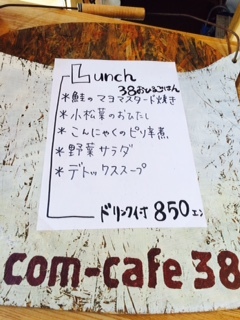 Lunch
38おひるごはん
*鮭のマヨマスタード焼き
*小松菜のおひたし
*こんにゃくのピリ辛煮
*野菜サラダ
*デトックススープ
ドリンク付 850エン
com-cafe 38